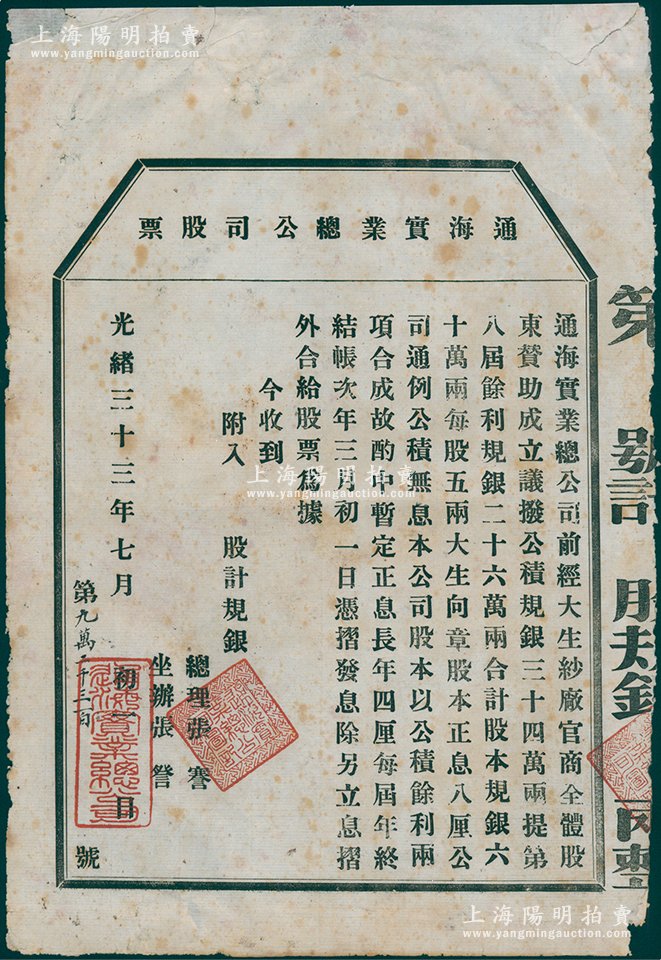 上海陽明拍賣
www.yangmingauction.com
通海實業總公司股票
通海實業總公司前經大生紗廠官商全體股
東贊助成立議撥公積規銀三十四萬兩提第
八屆餘利規銀二十六萬兩合計股本規銀六
十萬兩每股五兩大生向章股本正息八厘公
司通例公積無息本公司股本以公積餘利兩
項合成故酌中暫定正息長年四厘每屆年終
結帳次年三月初一日憑摺發息除另立息摺
外合給股票爲據
今收到
附入 股計規銀
總理張謇
坐辦張詧
光緒三十三年七月初一日
第九萬二千三百 號
通海實業總公司
第 號計 股規銀 兩整
上海陽明拍賣
www.yangmingauction.com
上海陽明拍賣
www.yangmingauction.com